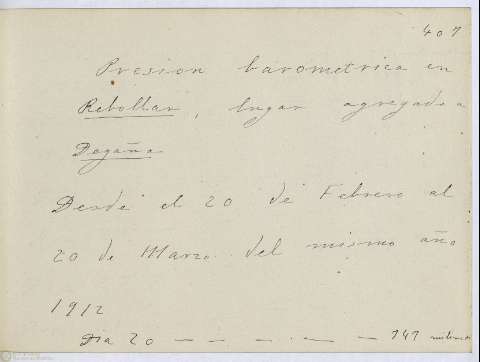 407
Presion barometrica en
Rebollar, lugar agregado a
Degaña
Desde el 20 de Febrero al
20 de Marzo del mismo año
1912
Dia 20 — — — · — — 747